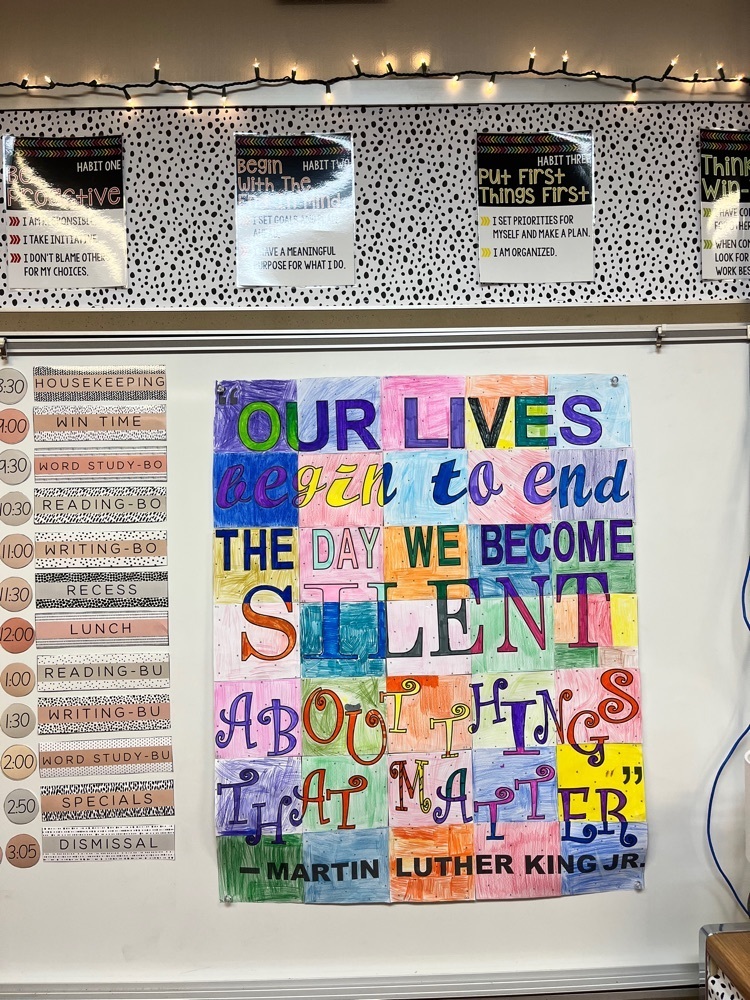 HABIT ONE
Proactive
I TAKE
I DON'T BLAME OTHER
FOR MY CHOICES.
HABIT TWO
Begin
With The
I SET GOALS
HAVE A MEANINGFUL
FOR WHAT I DO.
HABIT THREE
Put First
Things First
I SET PRIORITIES FOR
MYSELF AND MAKE A PLAN.
I AM ORGANIZED.
Think
Win
WHEN
LOOK FOR
WORK
8:30 HOUSEKEEPING
9:00 WIN TIME
9:30 WORD STUDY-BO
10:30 READING-BO
11:00 WRITING-BO
11:30 RECESS
12:00 LUNCH
1:00 READING-BU
1:30 WRITING-BU
2:00 WORD STUDY-BU
2:50 SPECIALS
3:05 DISMISSAL
"OUR LIVES
begin to end
THE DAY WE BECOME
SILENT
ABOUT THINGS
THAT MATTER"
– MARTIN LUTHER KING JR.